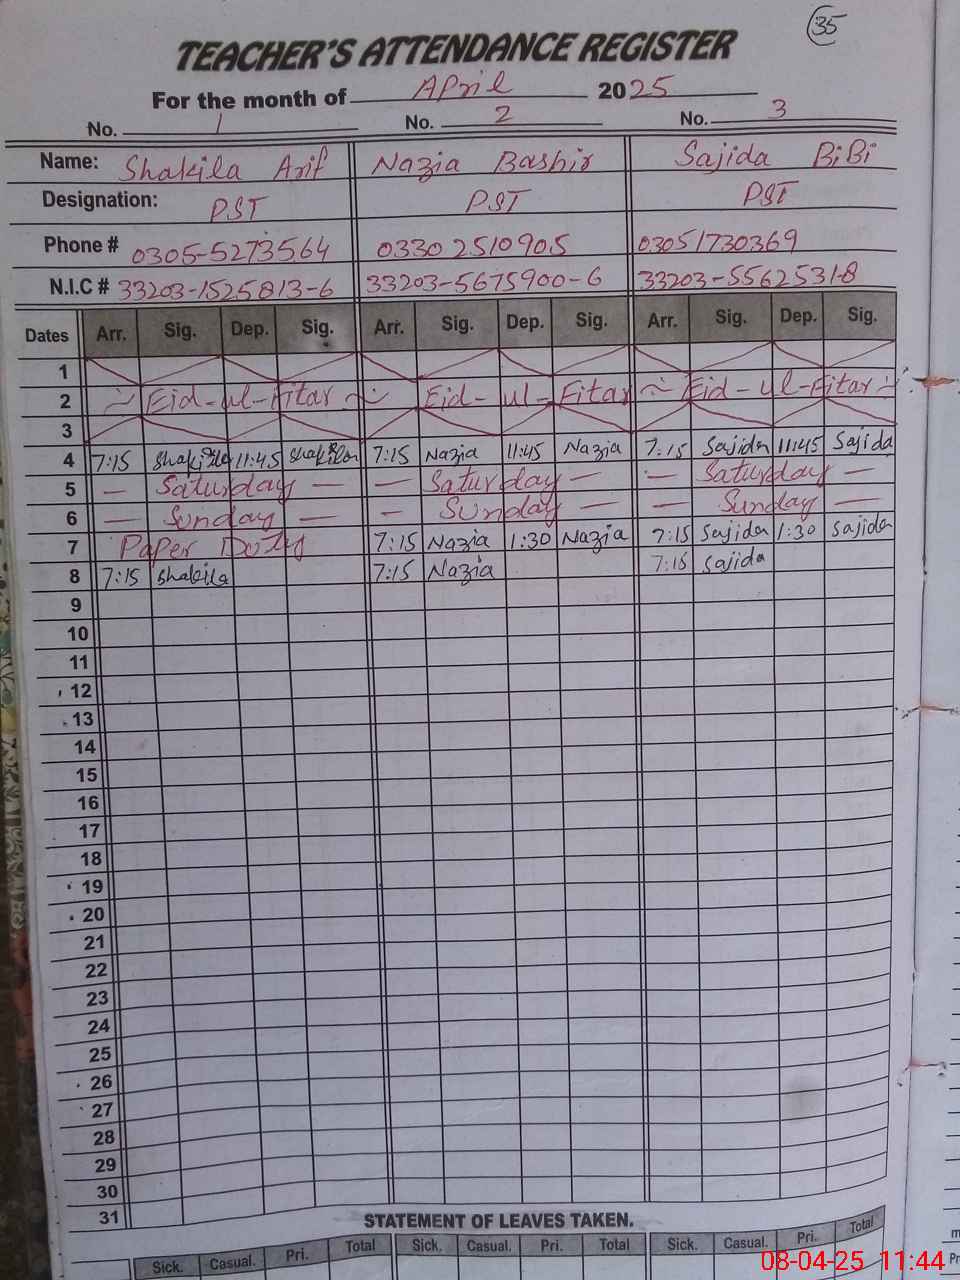 35
TEACHER'S ATTENDANCE REGISTER
For the month of April 2025
No. 1 No. 2 No. 3
Name: Shakila Arif Nazia Bashir Sajida BiBi
Designation: PST PST PST
Phone # 0305-5273564 0330 2510905 03051730369
N.I.C # 33203-1525813-6 33203-5675900-6 33203-55625318
Dates Arr. Sig. Dep. Sig. Arr. Sig. Dep. Sig. Arr. Sig. Dep. Sig.
1
2 Eid-ul-Fitar Eid-ul-Fitar Eid-ul-Fitar
3
4 7:15 Shakila 11:45 Shakila 7:15 Nazia 11:45 Nazia 7:15 Sajida 11:45 Sajida
5 — Saturday — — Saturday — — Saturday —
6 — Sunday — - Sunday — — Sunday —
7 Paper Duty 7:15 Nazia 1:30 Nazia 7:15 Sajida 1:30 Sajida
8 7:15 Shakila 7:15 Nazia 7:15 Sajida
9
10
11
12
13
14
15
16
17
18
19
20
21
22
23
24
25
26
27
28
29
30
31
STATEMENT OF LEAVES TAKEN.
Sick. Casual. Pri. Total Sick. Casual. Pri. Total Sick. Casual. Pri. Total
08-04-25 11:44